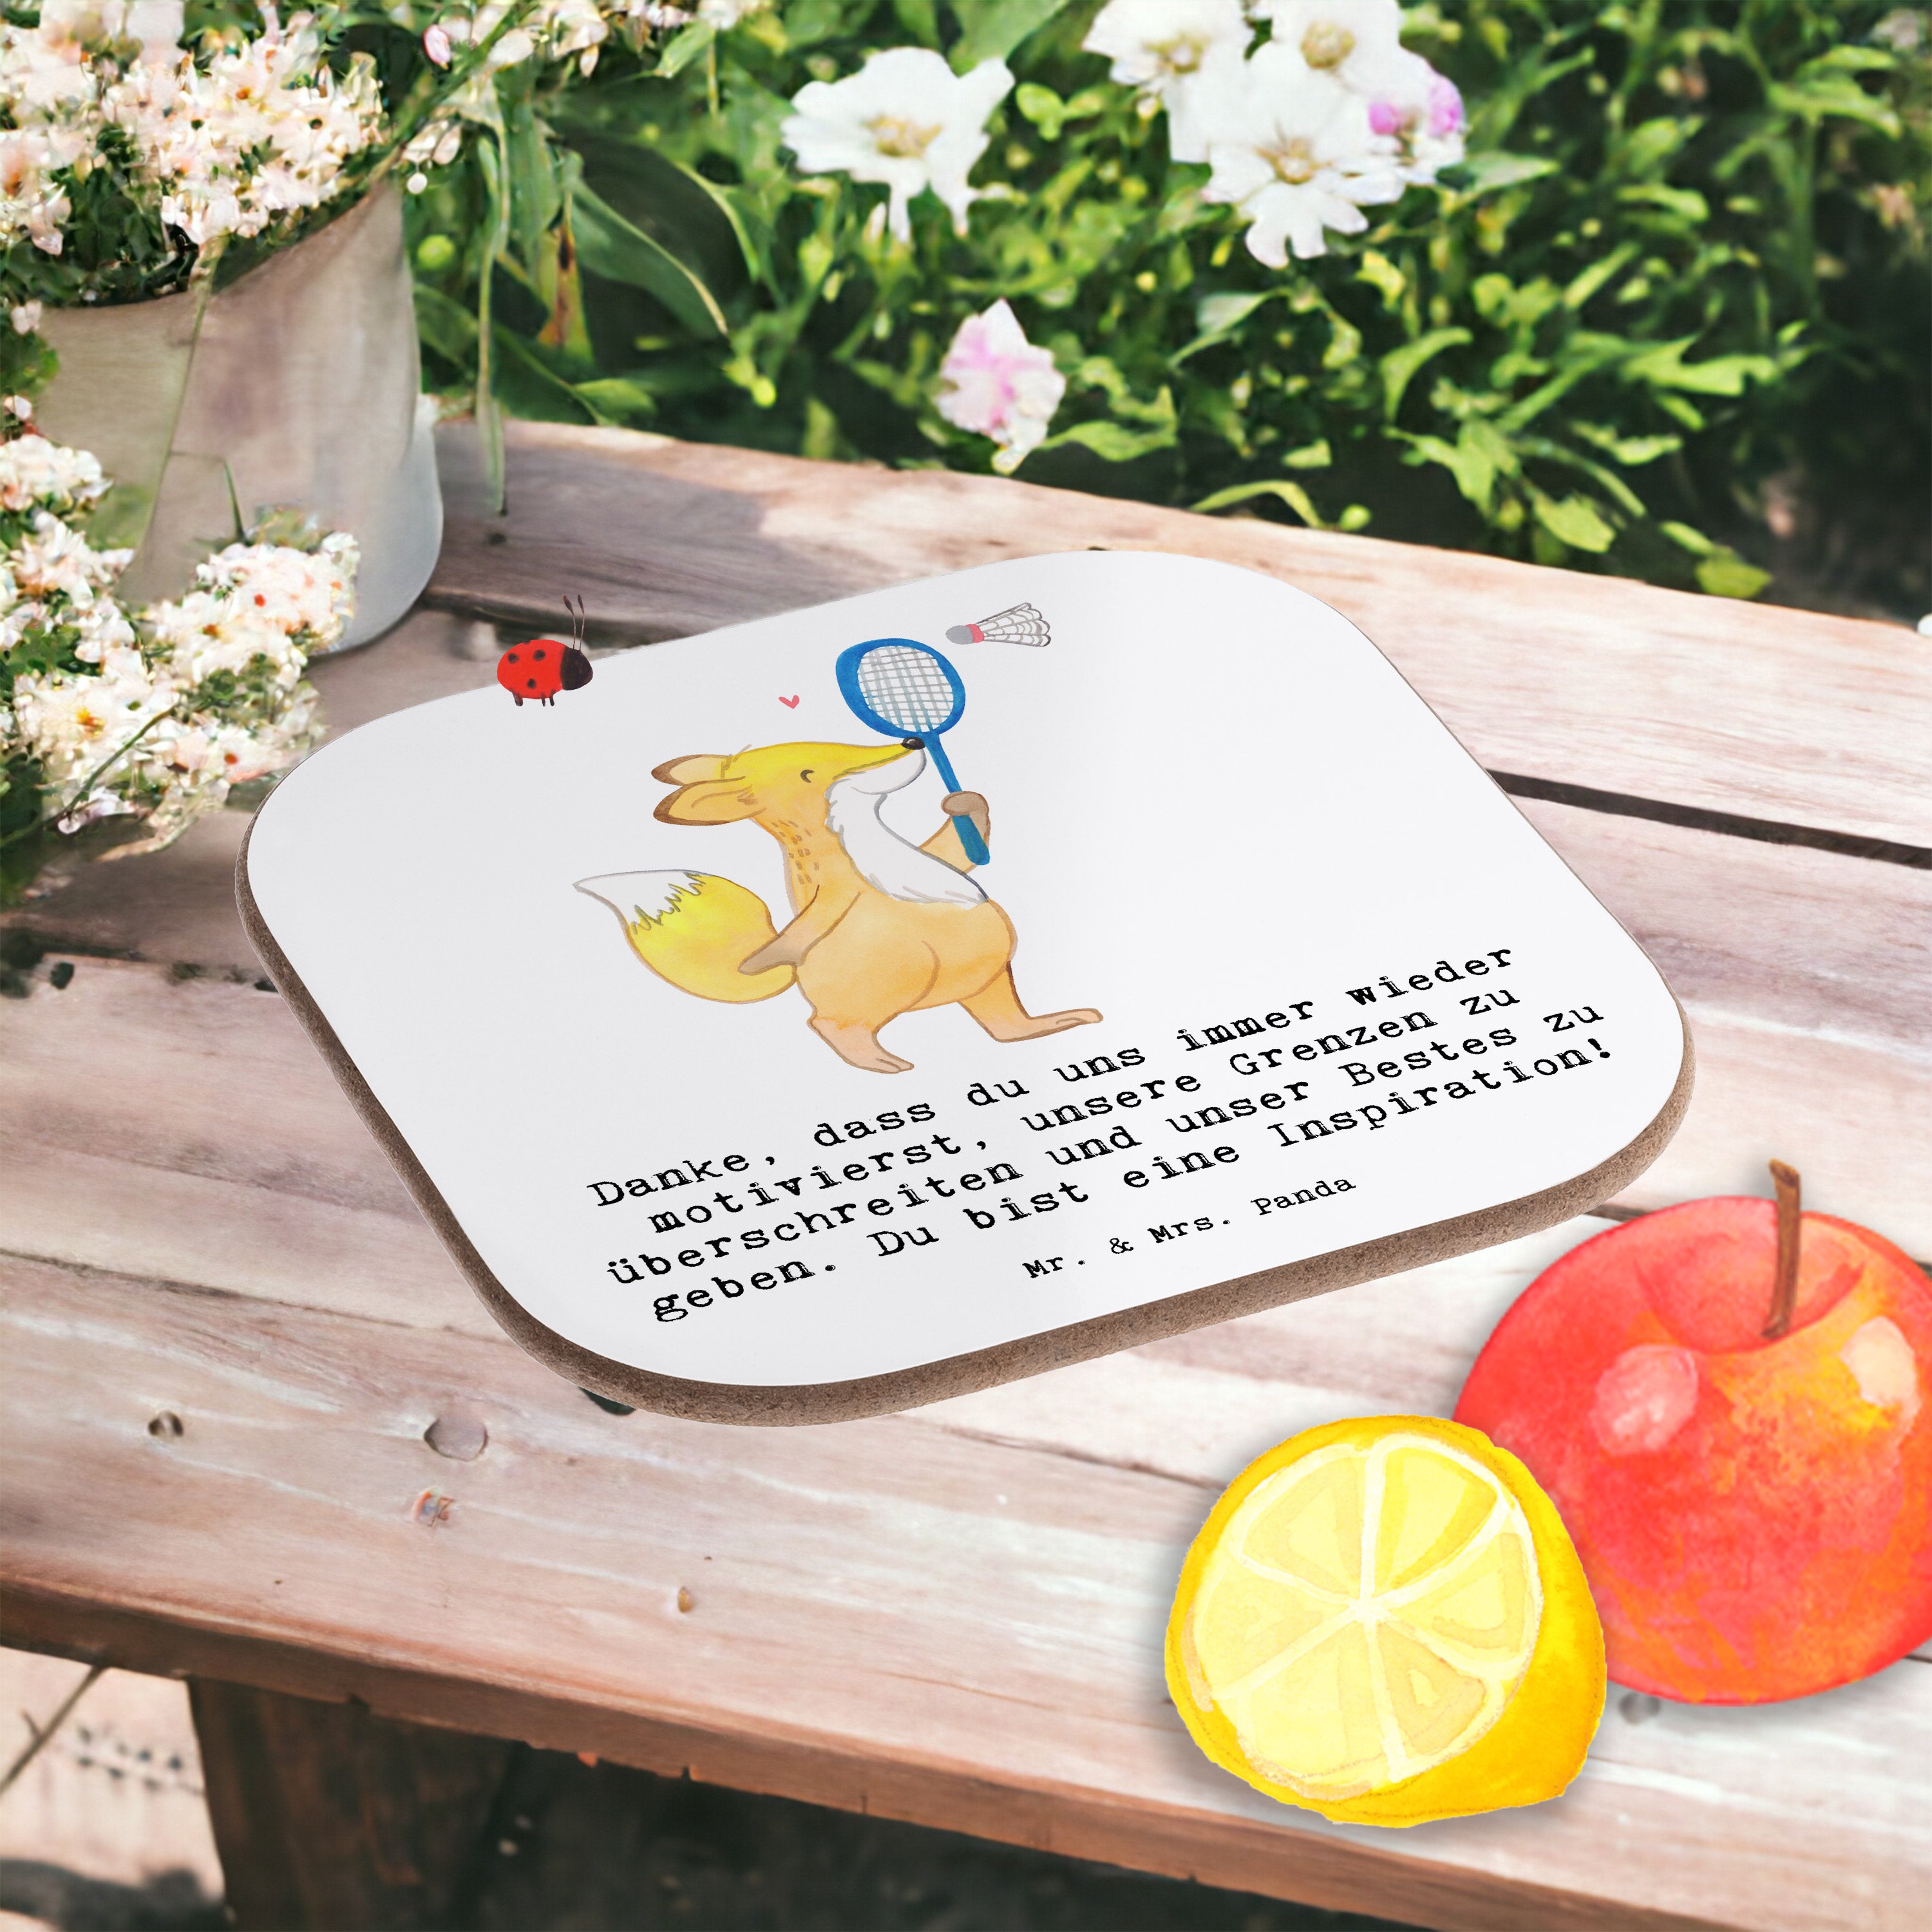 Danke, dass du uns immer wieder
motivierst, unsere Grenzen zu
überschreiten und unser Bestes zu
geben. Du bist eine Inspiration!
Mr. & Mrs. Panda